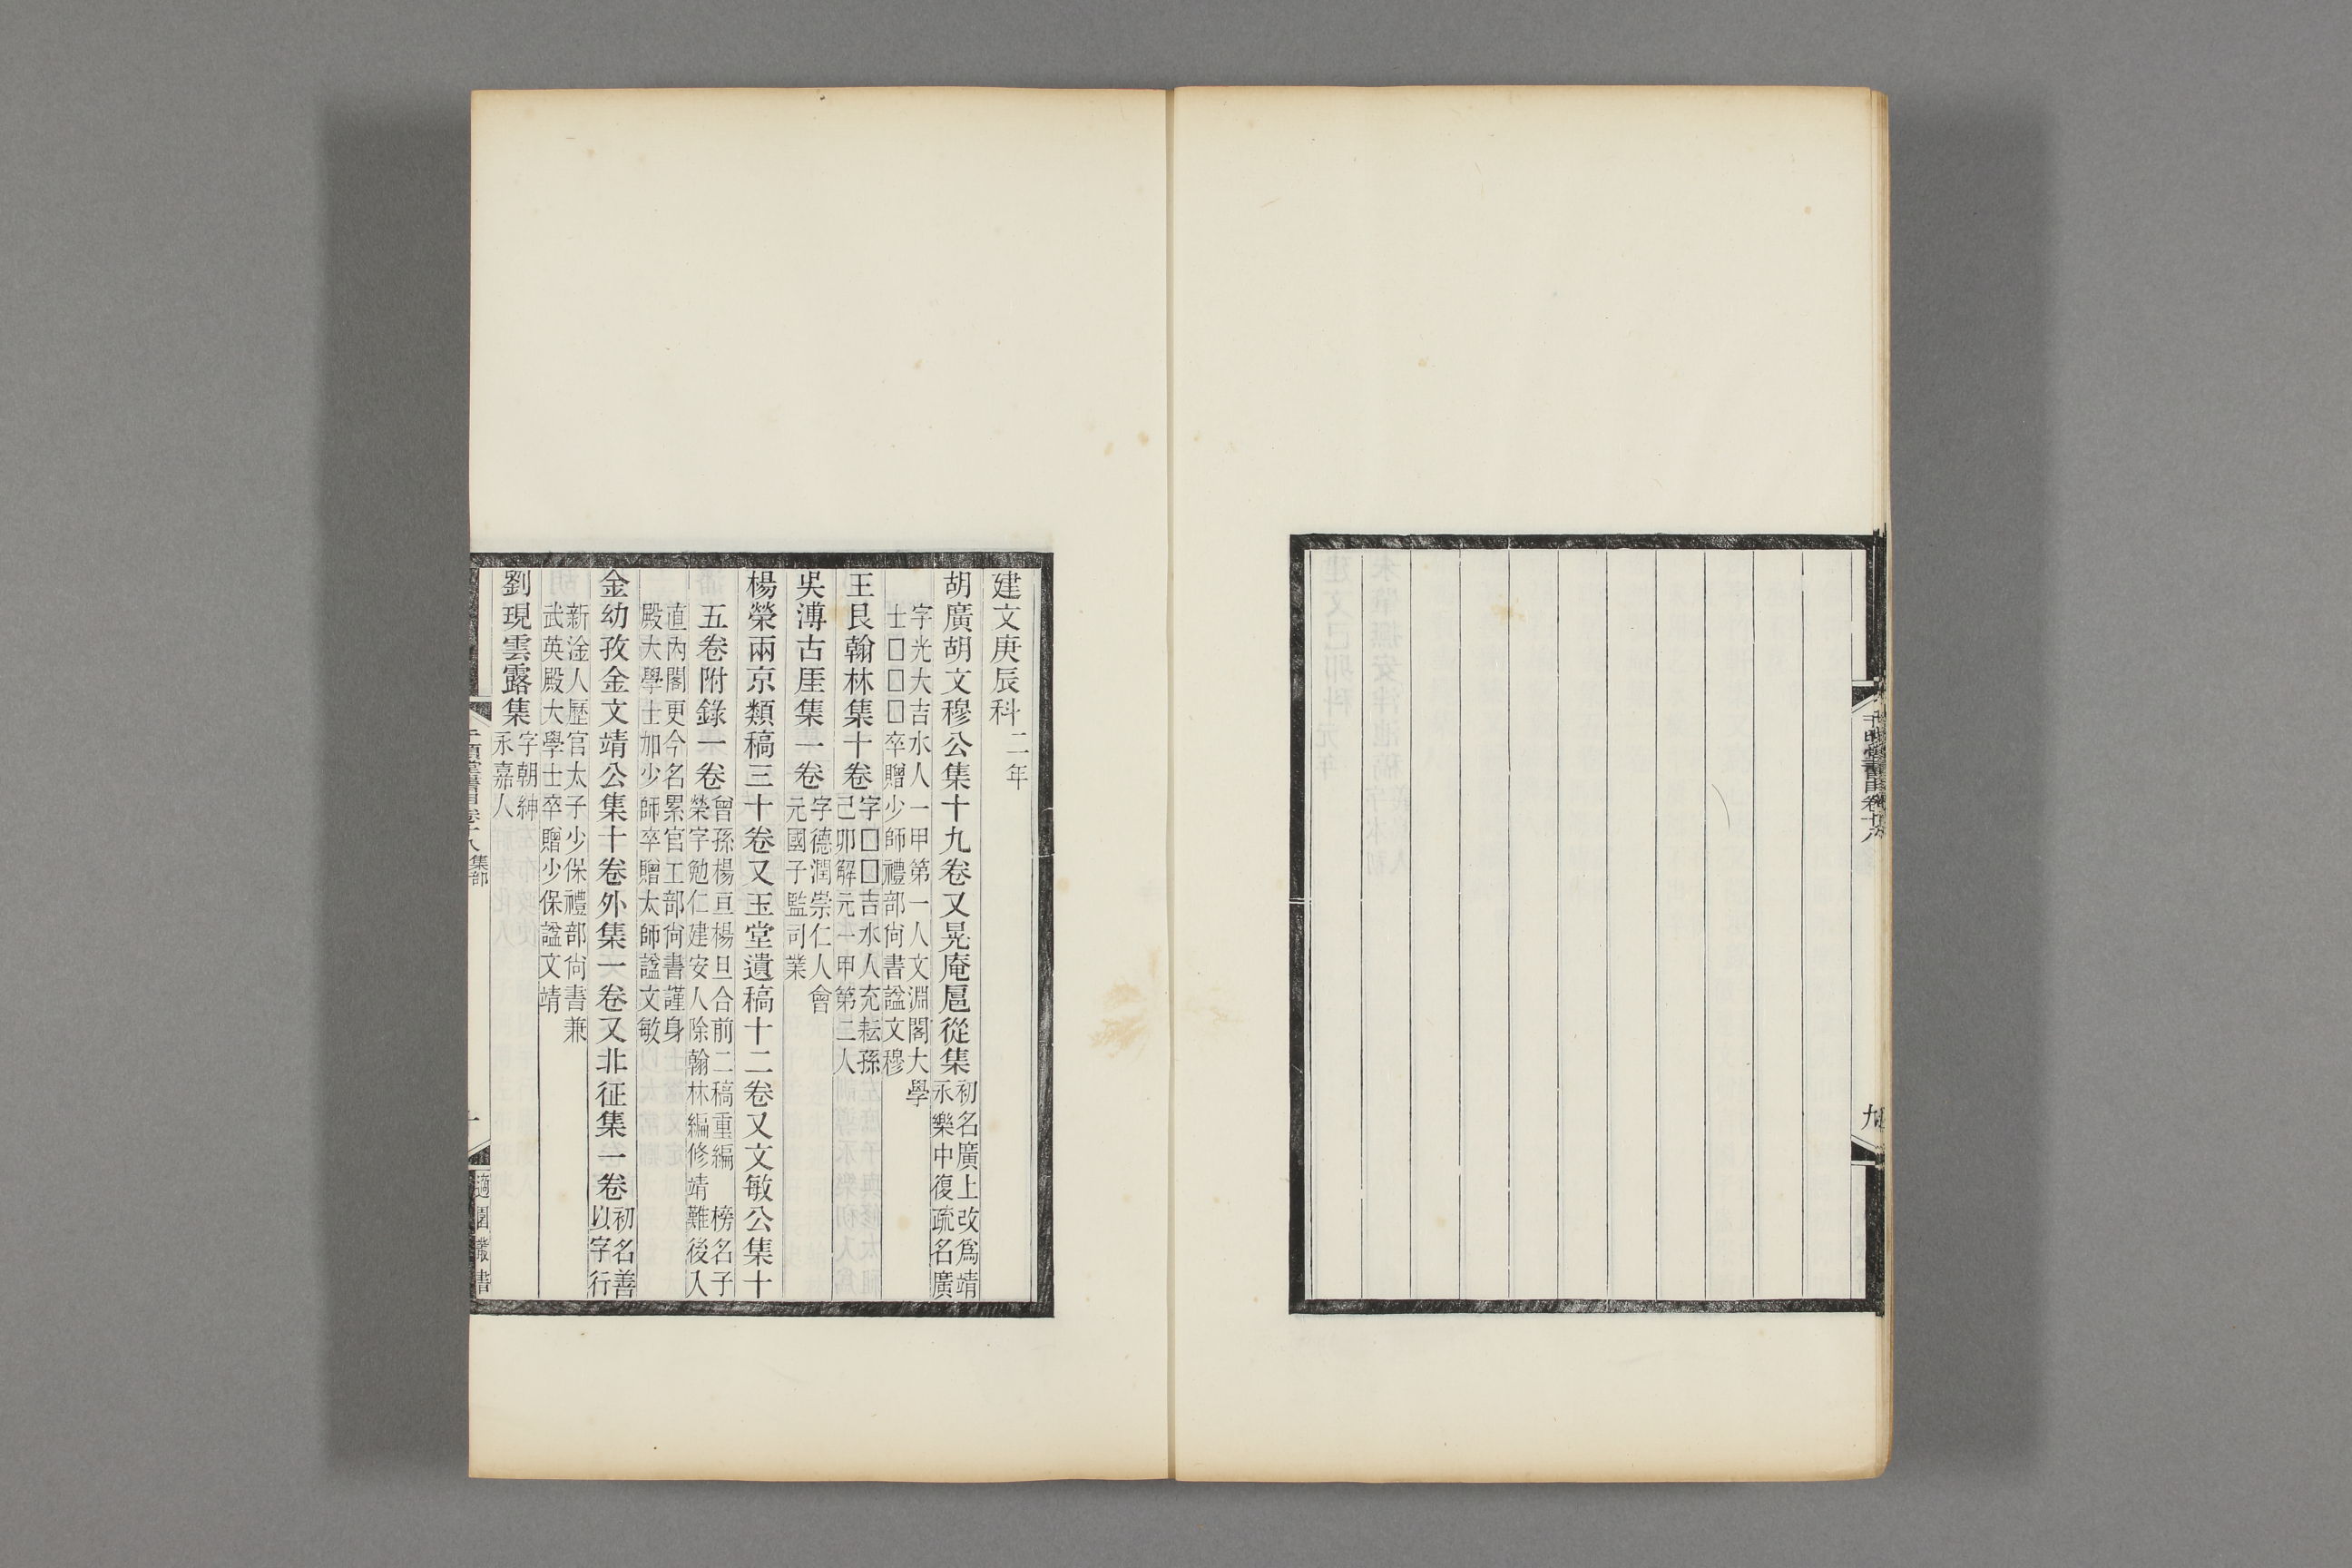 千頃堂書目卷十八
九
建文庚辰科二年
胡廣胡文穆公集十九卷又晃庵扈從集初名廣上改爲靖永樂中復疏名廣
字光大吉水人一甲第一人文淵閣大學士□□□卒贈少師禮部尙書諡文穆
王艮翰林集十卷字□□吉水人充耘孫己卯解元一甲第二人
吳溥古厓集一卷字德潤崇仁人會元國子監司業
楊榮兩京類稿三十卷又玉堂遺稿十二卷又文敏公集十
五卷附錄一卷曾孫楊亘楊旦合前二稿重編 榜名子榮字勉仁建安人除翰林編修靖難後入
直內閣更今名累官工部尙書謹身殿大學士加少師卒贈太師諡文敏
金幼孜金文靖公集十卷外集一卷又北征集一卷初名善以字行
新淦人歷官太子少保禮部尙書兼武英殿大學士卒贈少保諡文靖
劉現雲露集字朝紳永嘉人
千頃堂書目卷十八 集部
十
適園叢書